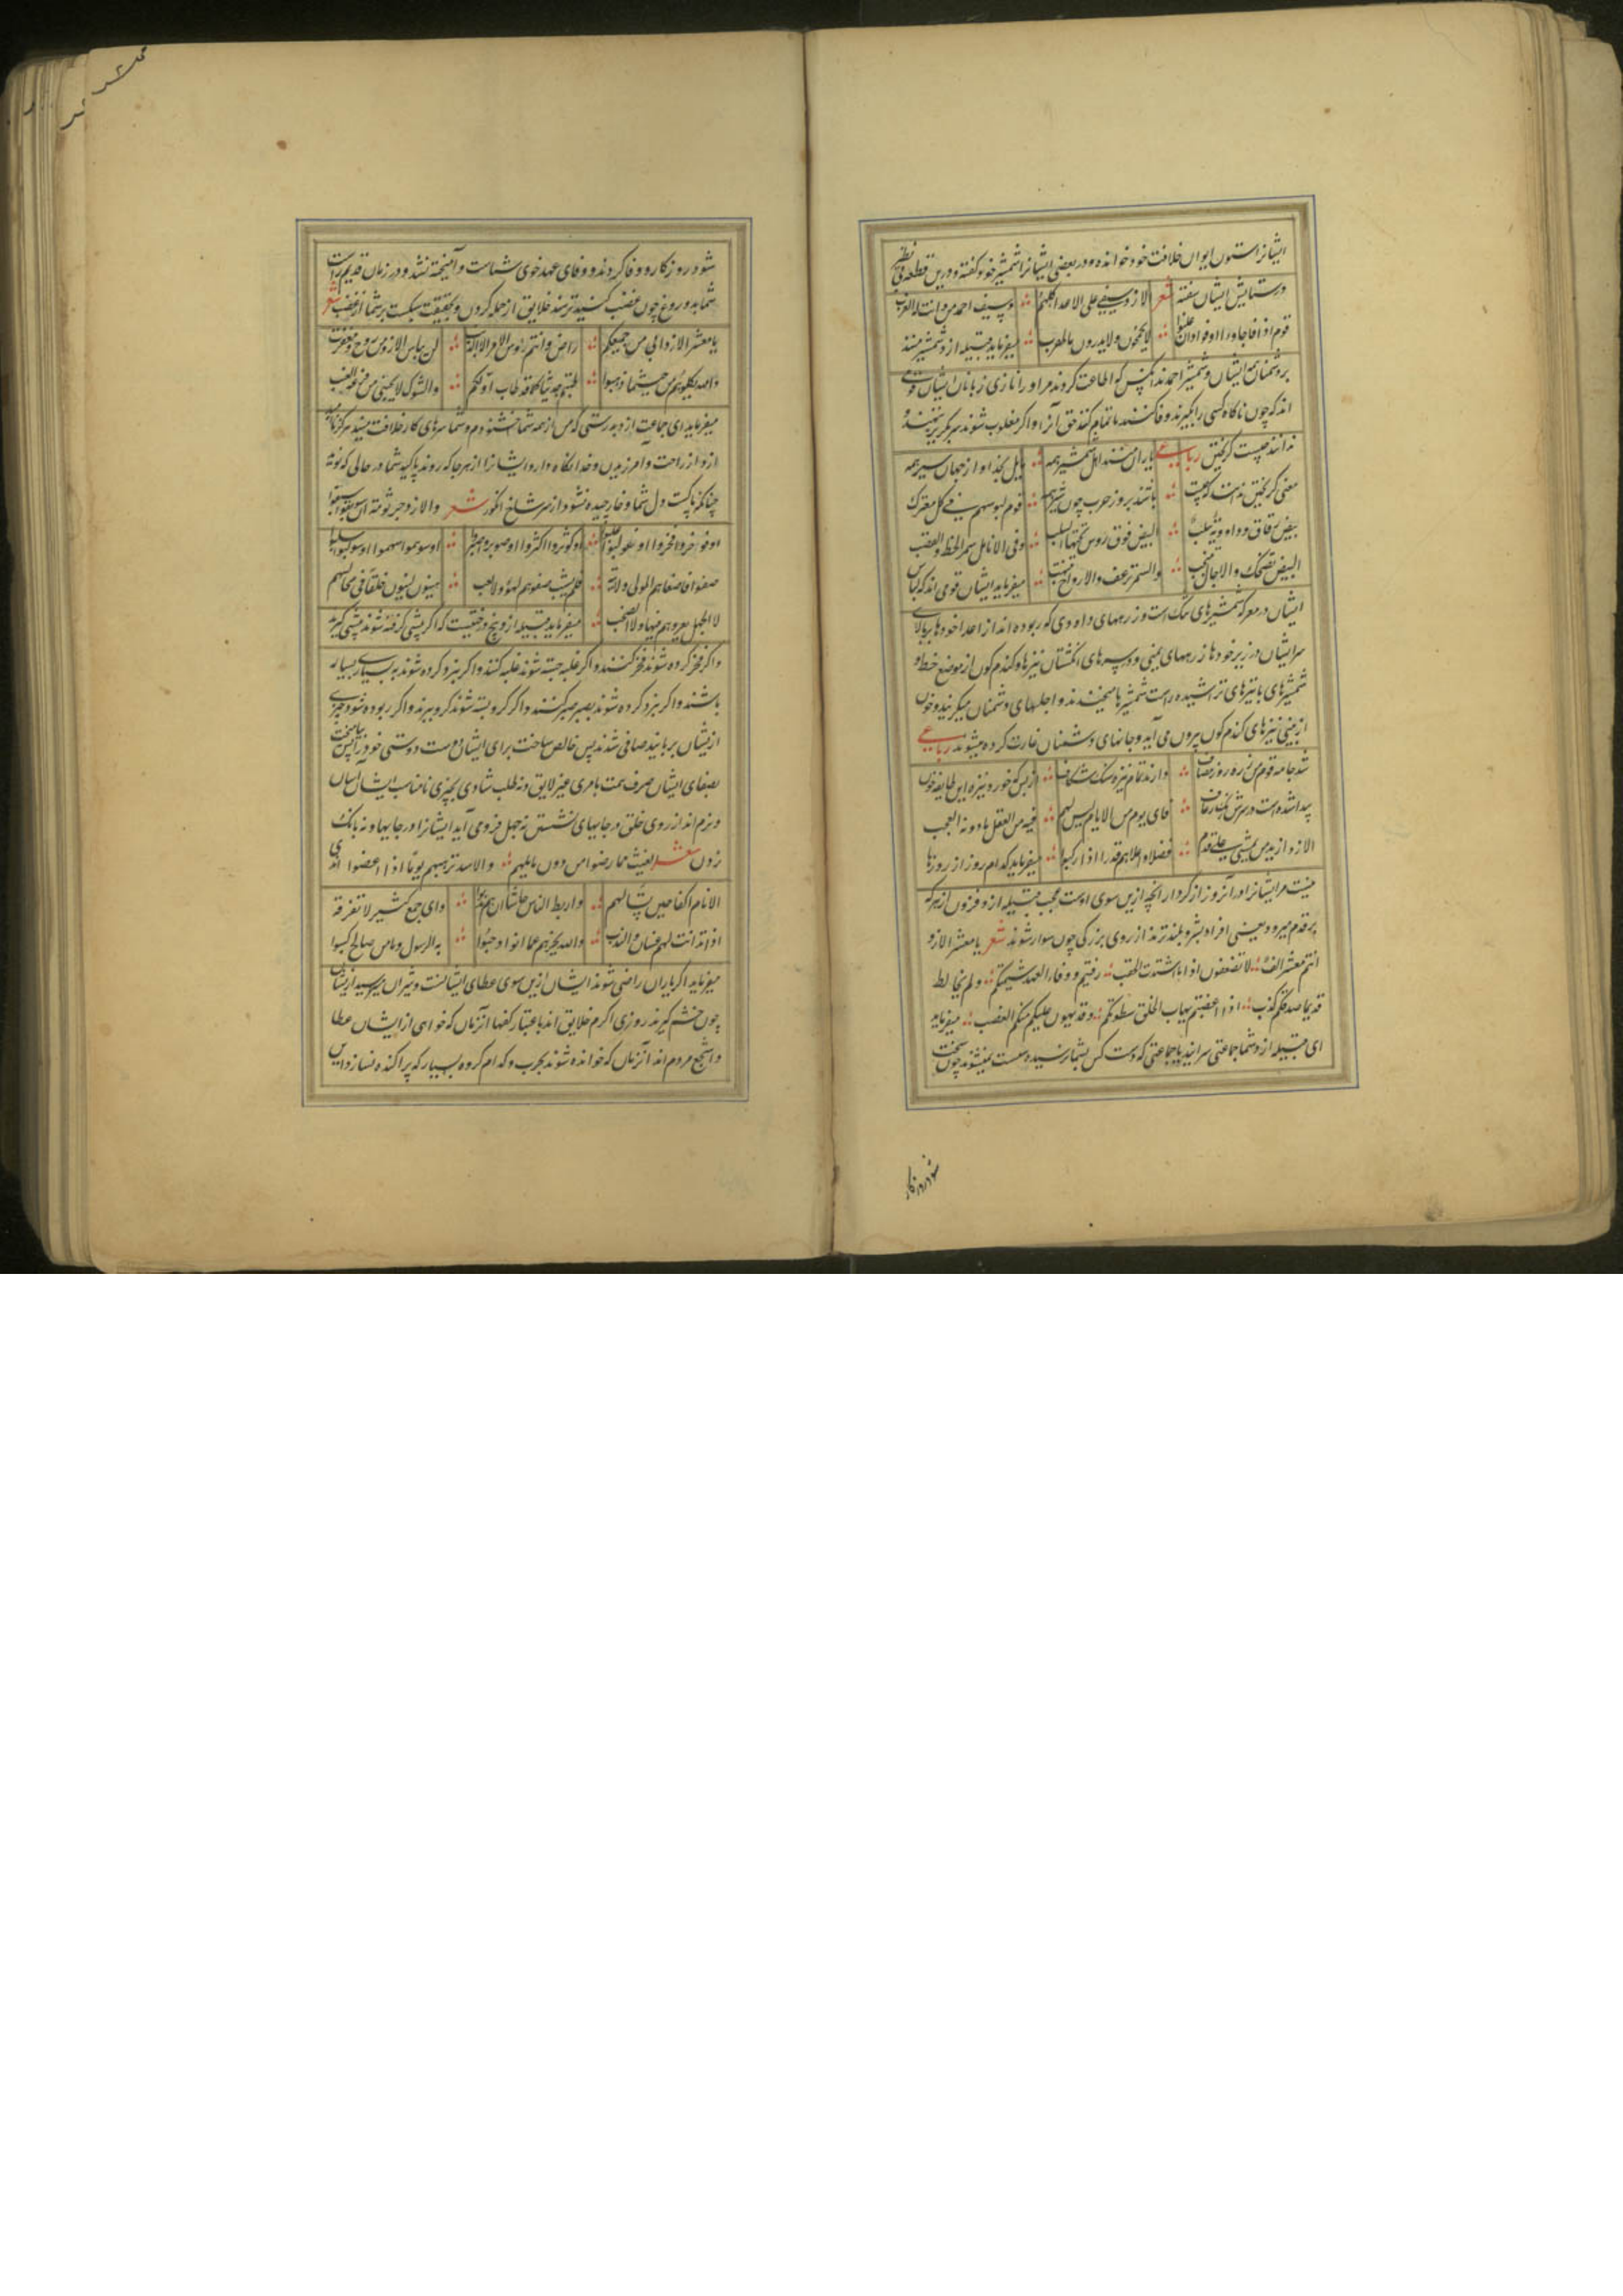 ایشانرا ستون ایوان خلافت خود خوانده و در بعضی ایشانرا شمشیر خود گفته و درین قطعه
در ستایش ایشان سفته شعر الازد سیفی علی الاعدا کلهم وسیف احمد من دانت له العرب
قوم اذا فاجاوا اوفوا وان غلبوا لا یحجمون ولا یدرون ما الهرب میفرماید قبیله ازد شمشیر منند
بر دشمنان همه ایشان و شمشیر احمدند آنکس که اطاعت کردند مر او را تازی زبانان ایشان قومی
اند که چون ناگاه کسی را بگیرند وفا کنند تا تمام کنند حق آنرا و اگر مغلوب شوند
ندانند چیست گریختن رباعی یاران منند اهل شمشیر همه
معنی گریختن ندانند که چیست باشند بروز حرب چون شیر همه قوم لبوسهم فی کل معترک
بیض رقاق وداودیة سلب البیض فوق رؤس تحتها الیلب وفی الانامل سمر الخط والقضب
البیض تضحک والاجال تنتحب والسمر ترعف والارواح تنتهب میفرماید ایشان قومی اند که لباس
ایشان در معرکه شمشیرهای تنک است و زرههای داودی که ربوده اند از اعدا خودها بر بالای
سر ایشان در زیر خودها زرههای یمنی و در سرهای انگشتان نیزها و گندم گون از موضع خط و
شمشیرهای با تیزهای تراشیده راست شمشیرها میخندند و اجلهای دشمنان میگریند و خون
از بینی نیزهای گندم گون بیرون می آید و جانهای دشمنان غارت کرده میشوند رباعی
شد جامه قوم من زره روز مصاف دارند تمام نیزه سنگ شکاف از بس که خورد نیزه این طایفه خون
پیدا شده است در سرش رعاف فای یوم من الایام لیس لهم فیه من الفعل ما دونه العجب
الازد ازید من یمشی علی قدم فضلا واعلاهم قدرا اذا رکبوا میفرماید کدام روز از روزها
نیست مر ایشانرا در آنروز از کردار آنچه ازین سوی اوست عجب قبیله ازد فزون از هر که
بر قدم میرود یعنی افراد بشر و بلندترند از روی بزرگی چون سوار شوند شعر یا معشر الازد
انتم معشر انف لا تضعفون اذا ما اشتدت الحقب وفیتم ووفاء العهد شیمتکم ولم یخالط
قدیما صدقکم کذب اذا غضبتم یهاب الخلق سطوتکم وقد یهون علیکم منکم الغضب میفرماید
ای قبیله ازد شما جماعتی سرانید یا جماعتی که دست کس بشما نرسیده سست نمیشوید چون سخت
شود روزگار
شود روزگار و وفا کردند و وفای عهد خوی شماست و آمیخته نشد در زمان قدیم راست
شما بدروغ چون غضب کنید ترسند خلایق از حمله کردن و بحقیقت سبکست بر شما از غضب شعر
یا معشر الازد انی من جمیعکم راض وانتم رؤس الامر لا الذنب لن ییاس الازد من روح ومغفرة
والله یکلؤهم من حیث ما ذهبوا طبتم حدیثا کما قد طاب اولکم والشوک لا یجتنی من فرعه العنب
میفرماید ای جماعت ازد بدرستی که من از همه شما خشنودم و شما سرهای کار خلافت
ازد از راحت و آمرزیدن و خدا نگاه دارد ایشانرا از هر جا که روند پاکید شما در حالی که نونه
چنانکه پاکست دل شما و خار چیده نشود از سر شاخ انگور شعر والازد جرثومة ان سوبقوا سبقوا
او فوخروا فخروا او غولبوا غلبوا او کوثروا کثروا او صوبروا صبروا او سوهموا سهموا او سولبوا سلبوا
صفوا فاصفاهم المولی ولایته فلم یشب صفوهم لهو ولا لعب هینون لینون خلقا فی مجالسهم
لا الجهل یعروهم فیها ولا الصخب میفرماید قبیله ازد بیخ درختیست که اگر پیشی گرفته شوند پیشی گیرند
و اگر فخر کرده شوند فخر کنند و اگر غلبه جسته شوند غلبه کنند و اگر نبرد کرده شوند به بسیاری بسیار
باشند و اگر نبرد کرده شوند بصبر صبر کنند و اگر گرو بسته شوند گرو برند و اگر ربوده شود چیزی
ازیشان بربایند صافی شدند پس خالص ساخت برای ایشان دوست دوستی خود را پس نیامیخت
بصفای ایشان صرف همت بامری غیر لایق و نه طلب شادی بچیزی نامناسب ایشان آسان
و نرم اند از روی خلق در جایهای نشستن نه جهل فرو می آید ایشانرا در جایها و نه بانگ
زدن شعر الغیث ما رضوا من دون نایلهم والاسد ترهبهم یوما اذا غضبوا اندی
الانام اکفا حین تسالهم واربط الناس جاشا ان هم ندبوا وای جمع کثیر لا تفرقه
اذا تدانت لهم غسان والندب والله یجزیهم عما اتوا وحبوا به الرسول وما من صالح کسبوا
میفرماید اگر باران راضی شوند ایشان ازین سوی عطای ایشانست و شیران میترسند ازیشان
چون خشم گیرند روزی اکرم خلایق اند باعتبار کفها آنزمان که خواهی از ایشان عطا
و اشجع مردم اند آنزمان که خوانده شوند بحرب و کدام گروه بسیار که پراکنده نسازد این